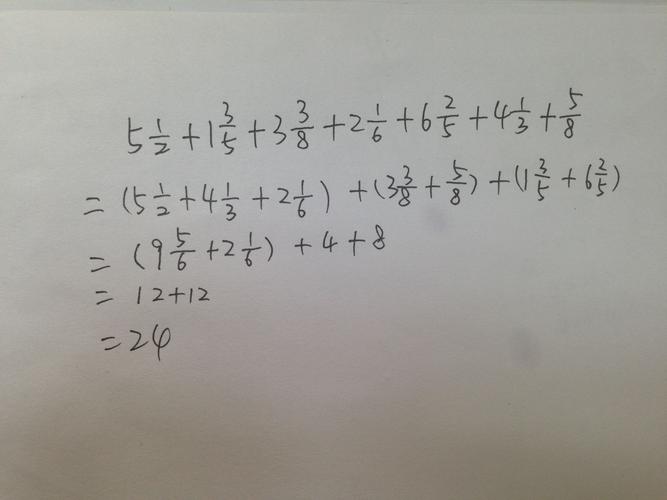 5 1/2 + 1 3/5 + 3 3/8 + 2 1/6 + 6 2/5 + 4 1/3 + 5/8
= (5 1/2 + 4 1/3 + 2 1/6) + (3 3/8 + 5/8) + (1 3/5 + 6 2/5)
= (9 5/6 + 2 1/6) + 4 + 8
= 12 + 12
= 24